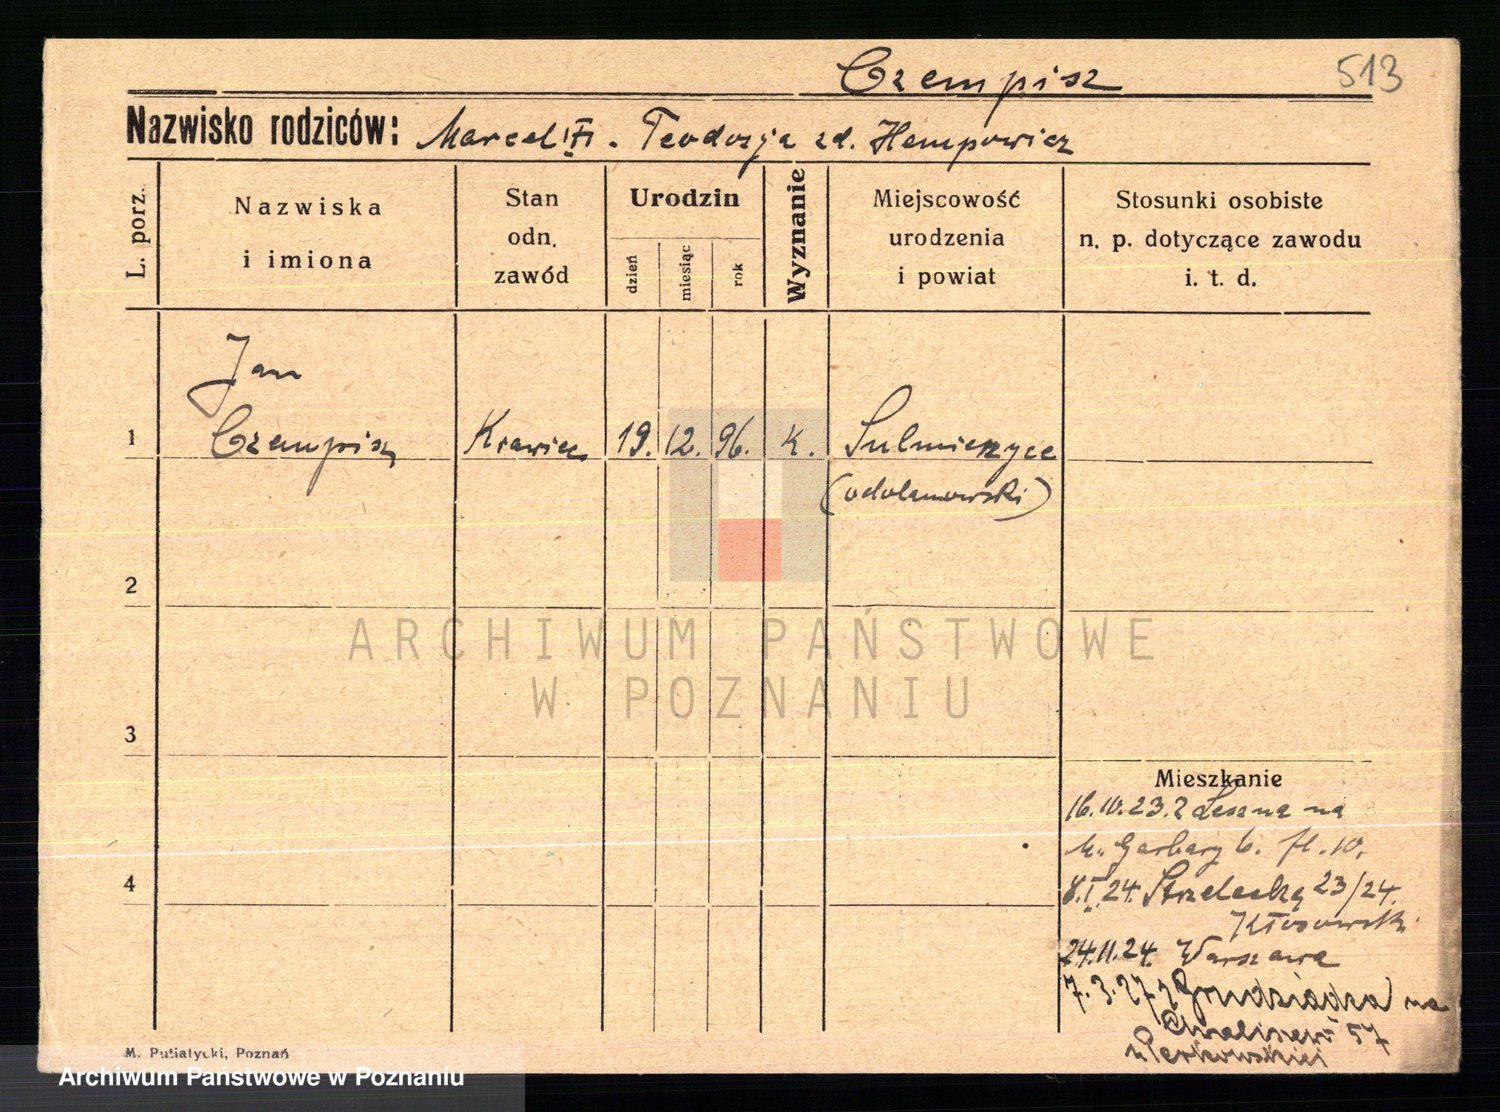 Czempisz
513
Nazwisko rodziców: Marcel - Teodozja zd. Hempowicz
L. porz.
Nazwiska
i imiona
Stan
odn.
zawód
Urodzin
dzień
miesiąc
rok
Wyznanie
Miejscowość
urodzenia
i powiat
Stosunki osobiste
n. p. dotyczące zawodu
i. t. d.
Jan
1 Czempisz Krawiec 19. 12. 96. K. Sulmierzyce
(odolanowski)
2
ARCHIWUM PAŃSTWOWE
W POZNANIU
3
Mieszkanie
16.10.23. z Leszna na
Garbary 6. 10.
4
8.I.24. Strzelecka 23/24.
Kłosowski
24.11.24. Warszawa
7.3.27 z Grudziądza na
57
Perkowskiej
M. Putiatycki, Poznań
Archiwum Państwowe w Poznaniu